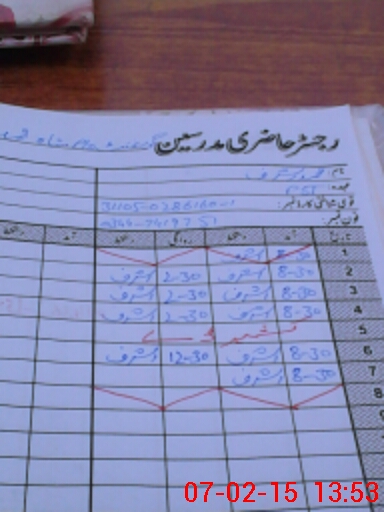 رجسٹر حاضری مدرسین
نام: اشرف
عہدہ: CST
قومی شناختی کارڈ نمبر: 31105-0286160-1
فون نمبر: 0344-7419751
تاریخ آمد دستخط روانگی دستخط آمد دستخط
1 8-30 اشرف
2 8-30 اشرف 2-30 اشرف
3 8-30 اشرف 2-30 اشرف
4 8-30 اشرف 2-30 اشرف
5 کشمیر ڈے
6 8-30 اشرف 12-30 اشرف
7 8-30 اشرف
8
9
07-02-15 13:53